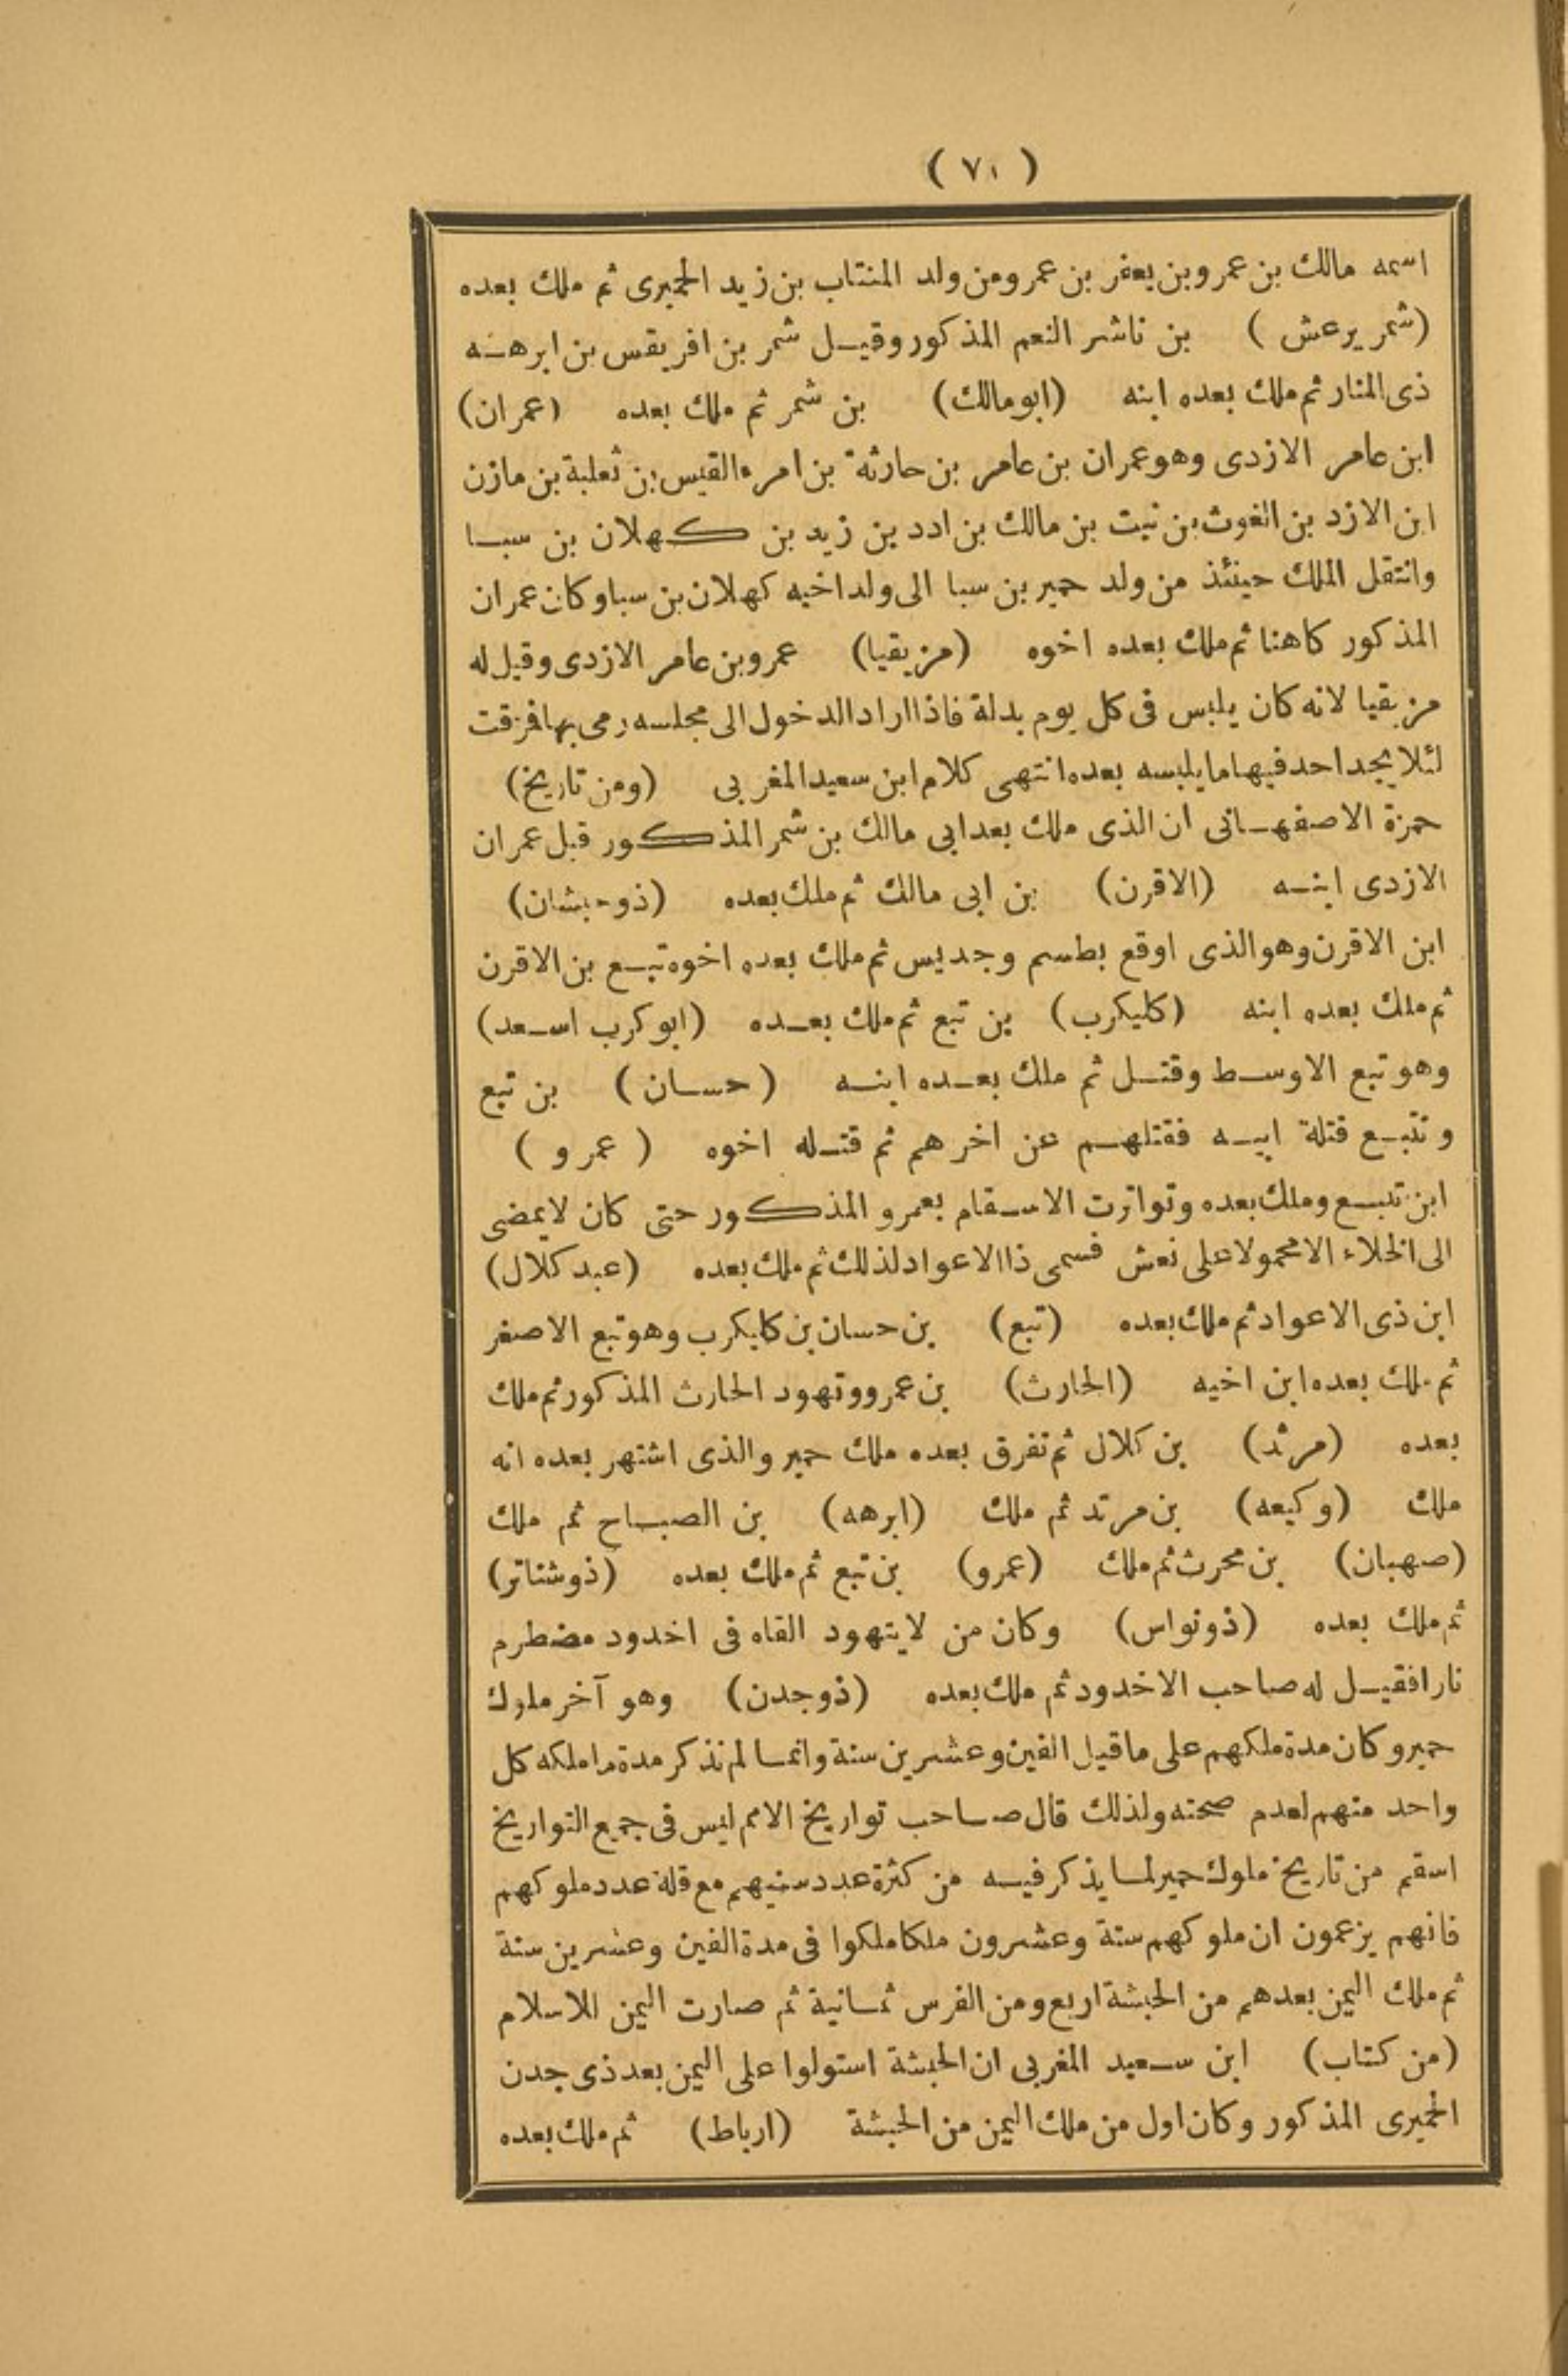 ( ٧١ )
اسمه مالك بن عمرو بن يعفر بن عمرو من ولد المنتاب بن زيد الحميرى ثم ملك بعده
(شمر يرعش ) بن ناشر النعم المذكور وقيل شمر بن افريقس بن ابرهه
ذى المنار ثم ملك بعده ابنه (ابو مالك) بن شمر ثم ملك بعده (عمران)
ابن عامر الازدى وهو عمران بن عامر بن حارثة بن امرء القيس بن ثعلبة بن مازن
ابن الازد بن الغوث بن نبت بن مالك بن ادد بن زيد بن كهلان بن سبا
وانتقل الملك حينئذ من ولد حمير بن سبا الى ولد اخيه كهلان بن سبا وكان عمران
المذكور كاهنا ثم ملك بعده اخوه (مزيقيا) عمرو بن عامر الازدى وقيل له
مزيقيا لانه كان يلبس فى كل يوم بدلة فاذا اراد الدخول الى مجلسه رمى بها فمزقت
لئلا يجد احد فيها ما يلبسه بعده انتهى كلام ابن سعيد المغربى (ومن تاريخ)
حمزة الاصفهانى ان الذى ملك بعد ابى مالك بن شمر المذكور قبل عمران
الازدى ابنه (الاقرن) بن ابى مالك ثم ملك بعده (ذو حبشان)
ابن الاقرن وهو الذى اوقع بطسم وجديس ثم ملك بعده اخوه تبع بن الاقرن
ثم ملك بعده ابنه (كليكرب) بن تبع ثم ملك بعده (ابو كرب اسعد)
وهو تبع الاوسط وقتل ثم ملك بعده ابنه (حسان) بن تبع
وتتبع قتلة ابيه فقتلهم عن اخرهم ثم قتله اخوه ( عمرو )
ابن تبع وملك بعده وتواترت الاسقام بعمرو المذكور حتى كان لا يمضى
الى الخلاء الا محمولا على نعش فسمى ذا الاعواد لذلك ثم ملك بعده (عبد كلال)
ابن ذى الاعواد ثم ملك بعده (تبع) بن حسان بن كليكرب وهو تبع الاصغر
ثم ملك بعده ابن اخيه (الحارث) بن عمرو وتهود الحارث المذكور ثم ملك
بعده (مرثد) بن كلال ثم تفرق بعده ملك حمير والذى اشتهر بعده انه
ملك (وكيعه) بن مرتد ثم ملك (ابرهه) بن الصباح ثم ملك
(صهبان) بن محرث ثم ملك (عمرو) بن تبع ثم ملك بعده (ذو شناتر)
ثم ملك بعده (ذو نواس) وكان من لا يتهود القاه فى اخدود مضطرم
نارا فقيل له صاحب الاخدود ثم ملك بعده (ذو جدن) وهو آخر ملوك
حمير وكان مدة ملكهم على ما قيل الفين وعشرين سنة وانما لم نذكر مدة ما ملكه كل
واحد منهم لعدم صحته ولذلك قال صاحب تواريخ الامم ليس فى جميع التواريخ
اسقم من تاريخ ملوك حمير لما يذكر فيه من كثرة عدد سنيهم مع قلة عدد ملوكهم
فانهم يزعمون ان ملوكهم ستة وعشرون ملكا ملكوا فى مدة الفين وعشرين سنة
ثم ملك اليمن بعدهم من الحبشة اربع ومن الفرس ثمانية ثم صارت اليمن للاسلام
(من كتاب) ابن سعيد المغربى ان الحبشة استولوا على اليمن بعد ذى جدن
الحميرى المذكور وكان اول من ملك اليمن من الحبشة (ارباط) ثم ملك بعده